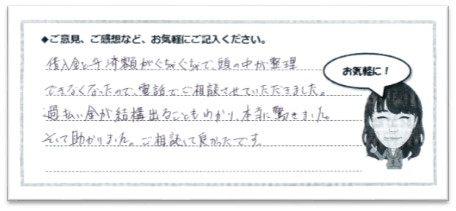 ◆ご意見、ご感想など、お気軽にご記入ください。
借入金と返済額がぐちゃぐちゃで、頭の中が整理
できなくなったので、電話でご相談させていただきました。
過払い金が結構出ることもわかり、本当に驚きました。
そして助かりました。ご相談して良かったです。
お気軽に！